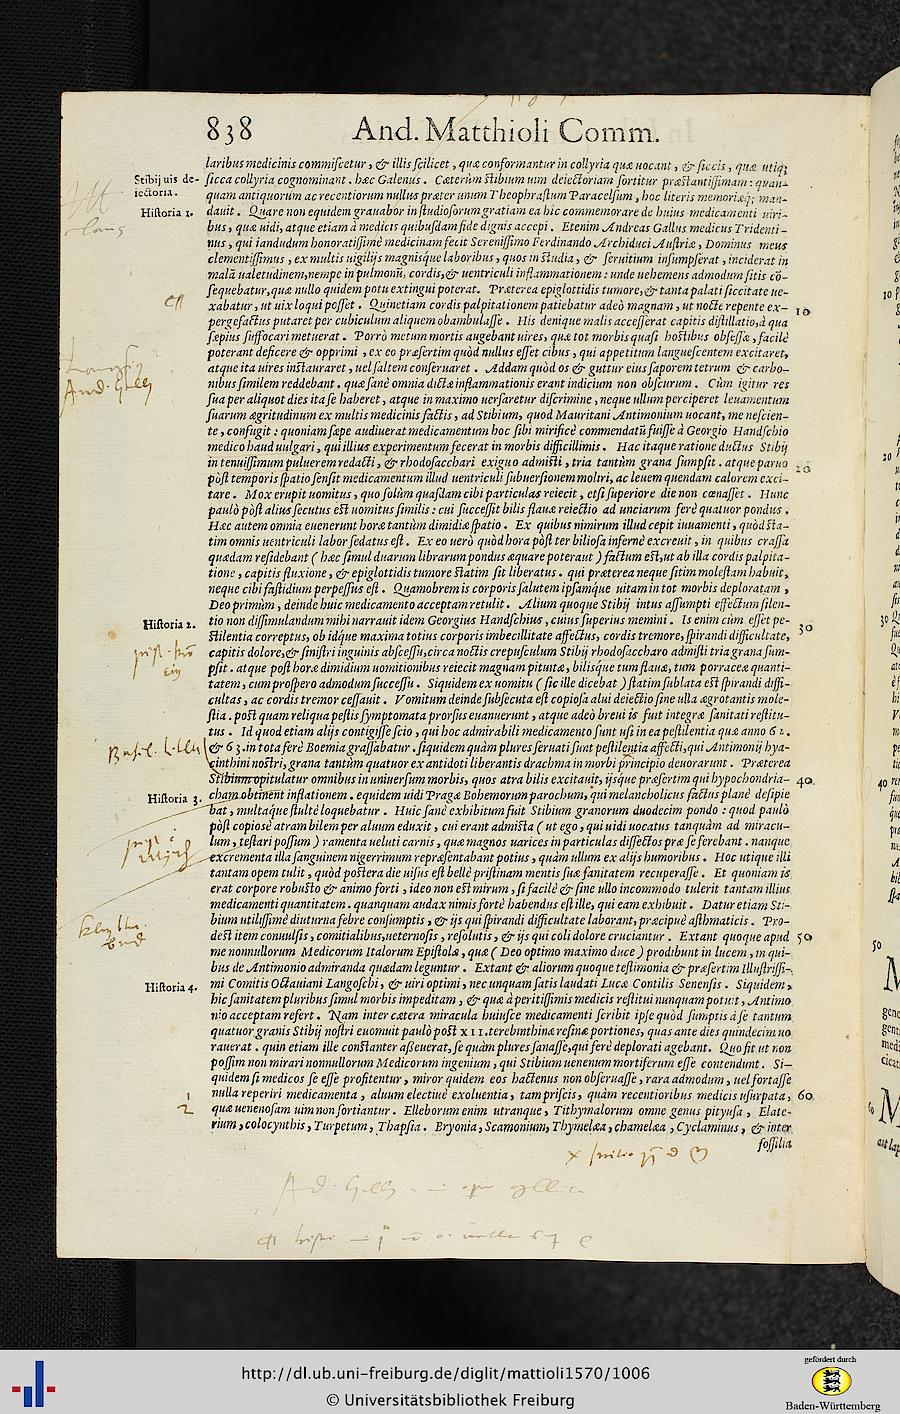 838 And. Matthioli Comm.
laribus medicinis commiſcetur, & illis ſcilicet, quæ conformantur in collyria quæ uocant, & ſiccis, quæ utiq;
Stibij uis de-
iectoria.
ſicca collyria cognominant. hæc Galenus. Cæterùm ſtibium uim deiectoriam ſortitur præſtantiſſimam: quan-
quam antiquorum ac recentiorum nullus præter unum Theophraſtum Paracelſum, hoc literis memoriæq; man-
Hiſtoria 1.
dauit. Quare non equidem grauabór in ſtudioſorum gratiam ea hic commemorare de huius medicamenti uiri-
bus, quæ uidi, atque etiam à medicis quibuſdam fide dignis accepi. Etenim Andreas Gallus medicus Tridenti-
nus, qui iandudum honoratiſſimè medicinam fecit Sereniſſimo Ferdinando Archiduci Auſtriæ, Dominus meus
clementiſſimus, ex multis uigilijs magnisque laboribus, quos in ſtudia, & ſeruitium inſumpſerat, inciderat in
malã ualetudinem, nempe in pulmonũ, cordis, & uentriculi inflammationem: unde uehemens admodum ſitis cõ-
ſequebatur, quæ nullo quidem potu extingui poterat. Præterea epiglottidis tumore, & tanta palati ſiccitate ue-
xabatur, ut uix loqui poſſet. Quinetiam cordis palpitationem patiebatur adeò magnam, ut nocte repente ex- 10
pergefactus putaret per cubiculum aliquem obambulaſſe. His denique malis acceſſerat capitis diſtillatio, à qua
ſæpius ſuffocari metuerat. Porrò metum mortis augebant uires, quæ tot morbis quaſi hoſtibus obſeſſæ, facilè
poterant deficere & opprimi, ex eo præſertim quòd nullus eſſet cibus, qui appetitum langueſcentem excitaret,
atque ita uires inſtauraret, uel ſaltem conſeruaret. Addam quòd os & guttur eius ſaporem tetrum & carbo-
nibus ſimilem reddebant. quæ ſanè omnia dictæ inflammationis erant indicium non obſcurum. Cùm igitur res
ſua per aliquot dies ita ſe haberet, atque in maximo uerſaretur diſcrimine, neque ullum perciperet leuamentum
ſuarum ægritudinum ex multis medicinis factis, ad Stibium, quod Mauritani Antimonium uocant, me neſcien-
te, confugit: quoniam ſæpe audiuerat medicamentum hoc ſibi mirificè commendatũ fuiſſe à Georgio Handſchio
medico haud uulgari, qui illius experimentum fecerat in morbis difficillimis. Hac itaque ratione ductus Stibij
in tenuiſſimum puluerem redacti, & rhodoſacchari exiguo admiſti, tria tantùm grana ſumpſit. atque paruo 20
pòſt temporis ſpatio ſenſit medicamentum illud uentriculi ſubuerſionem moliri, ac leuem quendam calorem exci-
tare. Mox erupit uomitus, quo ſolùm quaſdam cibi particulas reiecit, etſi ſuperiore die non cœnaſſet. Hunc
paulò pòſt alius ſecutus eſt uomitus ſimilis: cui ſucceſſit bilis flauæ reiectio ad unciarum ferè quatuor pondus.
Hæc autem omnia euenerunt horæ tantùm dimidiæ ſpatio. Ex quibus nimirum illud cepit iuuamenti, quòd ſta-
tim omnis uentriculi labor ſedatus eſt. Ex eo uerò quòd hora pòſt ter bilioſa infernè excreuit, in quibus craſſa
quædam reſidebant (hæc ſimul duarum librarum pondus æquare poterant) factum eſt, ut ab illa cordis palpita-
tione, capitis fluxione, & epiglottidis tumore ſtatim ſit liberatus. qui præterea neque ſitim moleſtam habuit,
neque cibi faſtidium perpeſſus eſt. Quamobrem is corporis ſalutem ipſamque uitam in tot morbis deploratam,
Deo primùm, deinde huic medicamento acceptam retulit. Alium quoque Stibij intus aſſumpti effectum ſilen-
Hiſtoria 2.
tio non diſſimulandum mihi narrauit idem Georgius Handſchius, cuius ſuperius memini. Is enim cùm eſſet pe- 30
ſtilentia correptus, ob idque maxima totius corporis imbecillitate affectus, cordis tremore, ſpirandi difficultate,
capitis dolore, & ſiniſtri inguinis abſceſſu, circa noctis crepuſculum Stibij rhodoſaccharo admiſti tria grana ſum-
pſit. atque poſt horæ dimidium uomitionibus reiecit magnam pituitæ, bilisque tum flauæ, tum porraceæ quanti-
tatem, cum proſpero admodum ſucceſſu. Siquidem ex uomitu (ſic ille dicebat) ſtatim ſublata eſt ſpirandi diffi-
cultas, ac cordis tremor ceſſauit. Vomitum deinde ſubſecuta eſt copioſa alui deiectio ſine ulla ægrotantis mole-
ſtia. poſt quam reliqua peſtis ſymptomata prorſus euanuerunt, atque adeò breui is fuit integræ ſanitati reſtitu-
tus. Id quod etiam alijs contigiſſe ſcio, qui hoc admirabili medicamento ſunt uſi in ea peſtilentia quæ anno 62.
& 63. in tota ferè Boemia graſſabatur. ſiquidem quàm plures ſeruati ſunt peſtilentia affecti, qui Antimonij hya-
cinthini noſtri, grana tantùm quatuor ex antidoti liberantis drachma in morbi principio deuorarunt. Præterea
Stibium opitulatur omnibus in uniuerſum morbis, quos atra bilis excitauit, ijsque præſertim qui hypochondria- 40
Hiſtoria 3.
cham obtinent inflationem. equidem uidi Pragæ Bohemorum parochum, qui melancholicus factus planè deſipie
bat, multaque ſtultè loquebatur. Huic ſanè exhibitum fuit Stibium granorum duodecim pondo: quod paulò
pòſt copiosè atram bilem per aluum eduxit, cui erant admiſta (ut ego, qui uidi uocatus tanquàm ad miracu-
lum, teſtari poſſum) ramenta ueluti carnis, quæ magnos uarices in particulas diſſectos præ ſe ferebant. nanque
excrementa illa ſanguinem nigerrimum repræſentabant potius, quàm ullum ex alijs humoribus. Hoc utique illi
tantam opem tulit, quòd poſtera die uiſus eſt bellè priſtinam mentis ſuæ ſanitatem recuperaſſe. Et quoniam is
erat corpore robuſto & animo forti, ideo non eſt mirum, ſi facilè & ſine ullo incommodo tulerit tantam illius
medicamenti quantitatem. quanquam audax nimis fortè habendus eſt ille, qui eam exhibuit. Datur etiam Sti-
bium utiliſſimè diuturna febre conſumptis, & ijs qui ſpirandi difficultate laborant, præcipuè aſthmaticis. Pro-
deſt item conuulſis, comitialibus, ueternoſis, reſolutis, & ijs qui coli dolore cruciantur. Extant quoque apud 50
me nonnullorum Medicorum Italorum Epiſtolæ, quæ (Deo optimo maximo duce) prodibunt in lucem, in qui-
bus de Antimonio admiranda quædam leguntur. Extant & aliorum quoque teſtimonia & præſertim Illuſtriſſi-
Hiſtoria 4.
mi Comitis Octauiani Langoſchi, & uiri optimi, nec unquam ſatis laudati Lucæ Contilis Senenſis. Siquidem,
hic ſanitatem pluribus ſimul morbis impeditam, & quæ à peritiſſimis medicis reſtitui nunquam potuit, Antimo
nio acceptam refert. Nam inter cætera miracula huiuſce medicamenti ſcribit ipſe quòd ſumptis à ſe tantum
quatuor granis Stibij noſtri euomuit paulò poſt XII. terebinthinæ reſinæ portiones, quas ante dies quindecim uo
rauerat. quin etiam ille conſtanter aſſeuerat, ſe quàm plures ſanaſſe, qui ferè deplorati agebant. Quo fit ut non
poſſim non mirari nonnullorum Medicorum ingenium, qui Stibium uenenum mortiferum eſſe contendunt. Si-
quidem ſi medicos ſe eſſe profitentur, miror quidem eos hactenus non obſeruaſſe, rara admodum, uel fortaſſe
nulla reperiri medicamenta, aluum electiuè exoluentia, tam priſcis, quàm recentioribus medicis uſurpata, 60
quæ uenenoſam uim non ſortiantur. Elleborum enim utranque, Tithymalorum omne genus pityuſa, Elate-
rium, colocynthis, Turpetum, Thapſia. Bryonia, Scamonium, Thymelæa, chamelæa, Cyclaminus, & inter
foſſilia
http://dl.ub.uni-freiburg.de/diglit/mattioli1570/1006
© Universitätsbibliothek Freiburg
gefördert durch
Baden-Württemberg